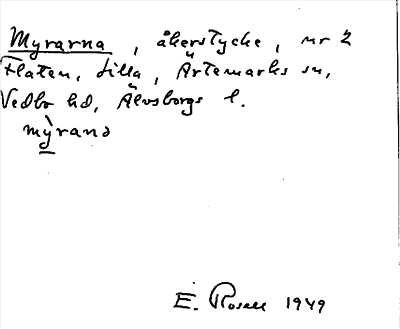 Myrarna, åkerstycke, nr 2
Flaten, Lilla, Ärtemarks sn,
Vedbo hd, Älvsborgs l.
mỳrana
E. Rosell 1949